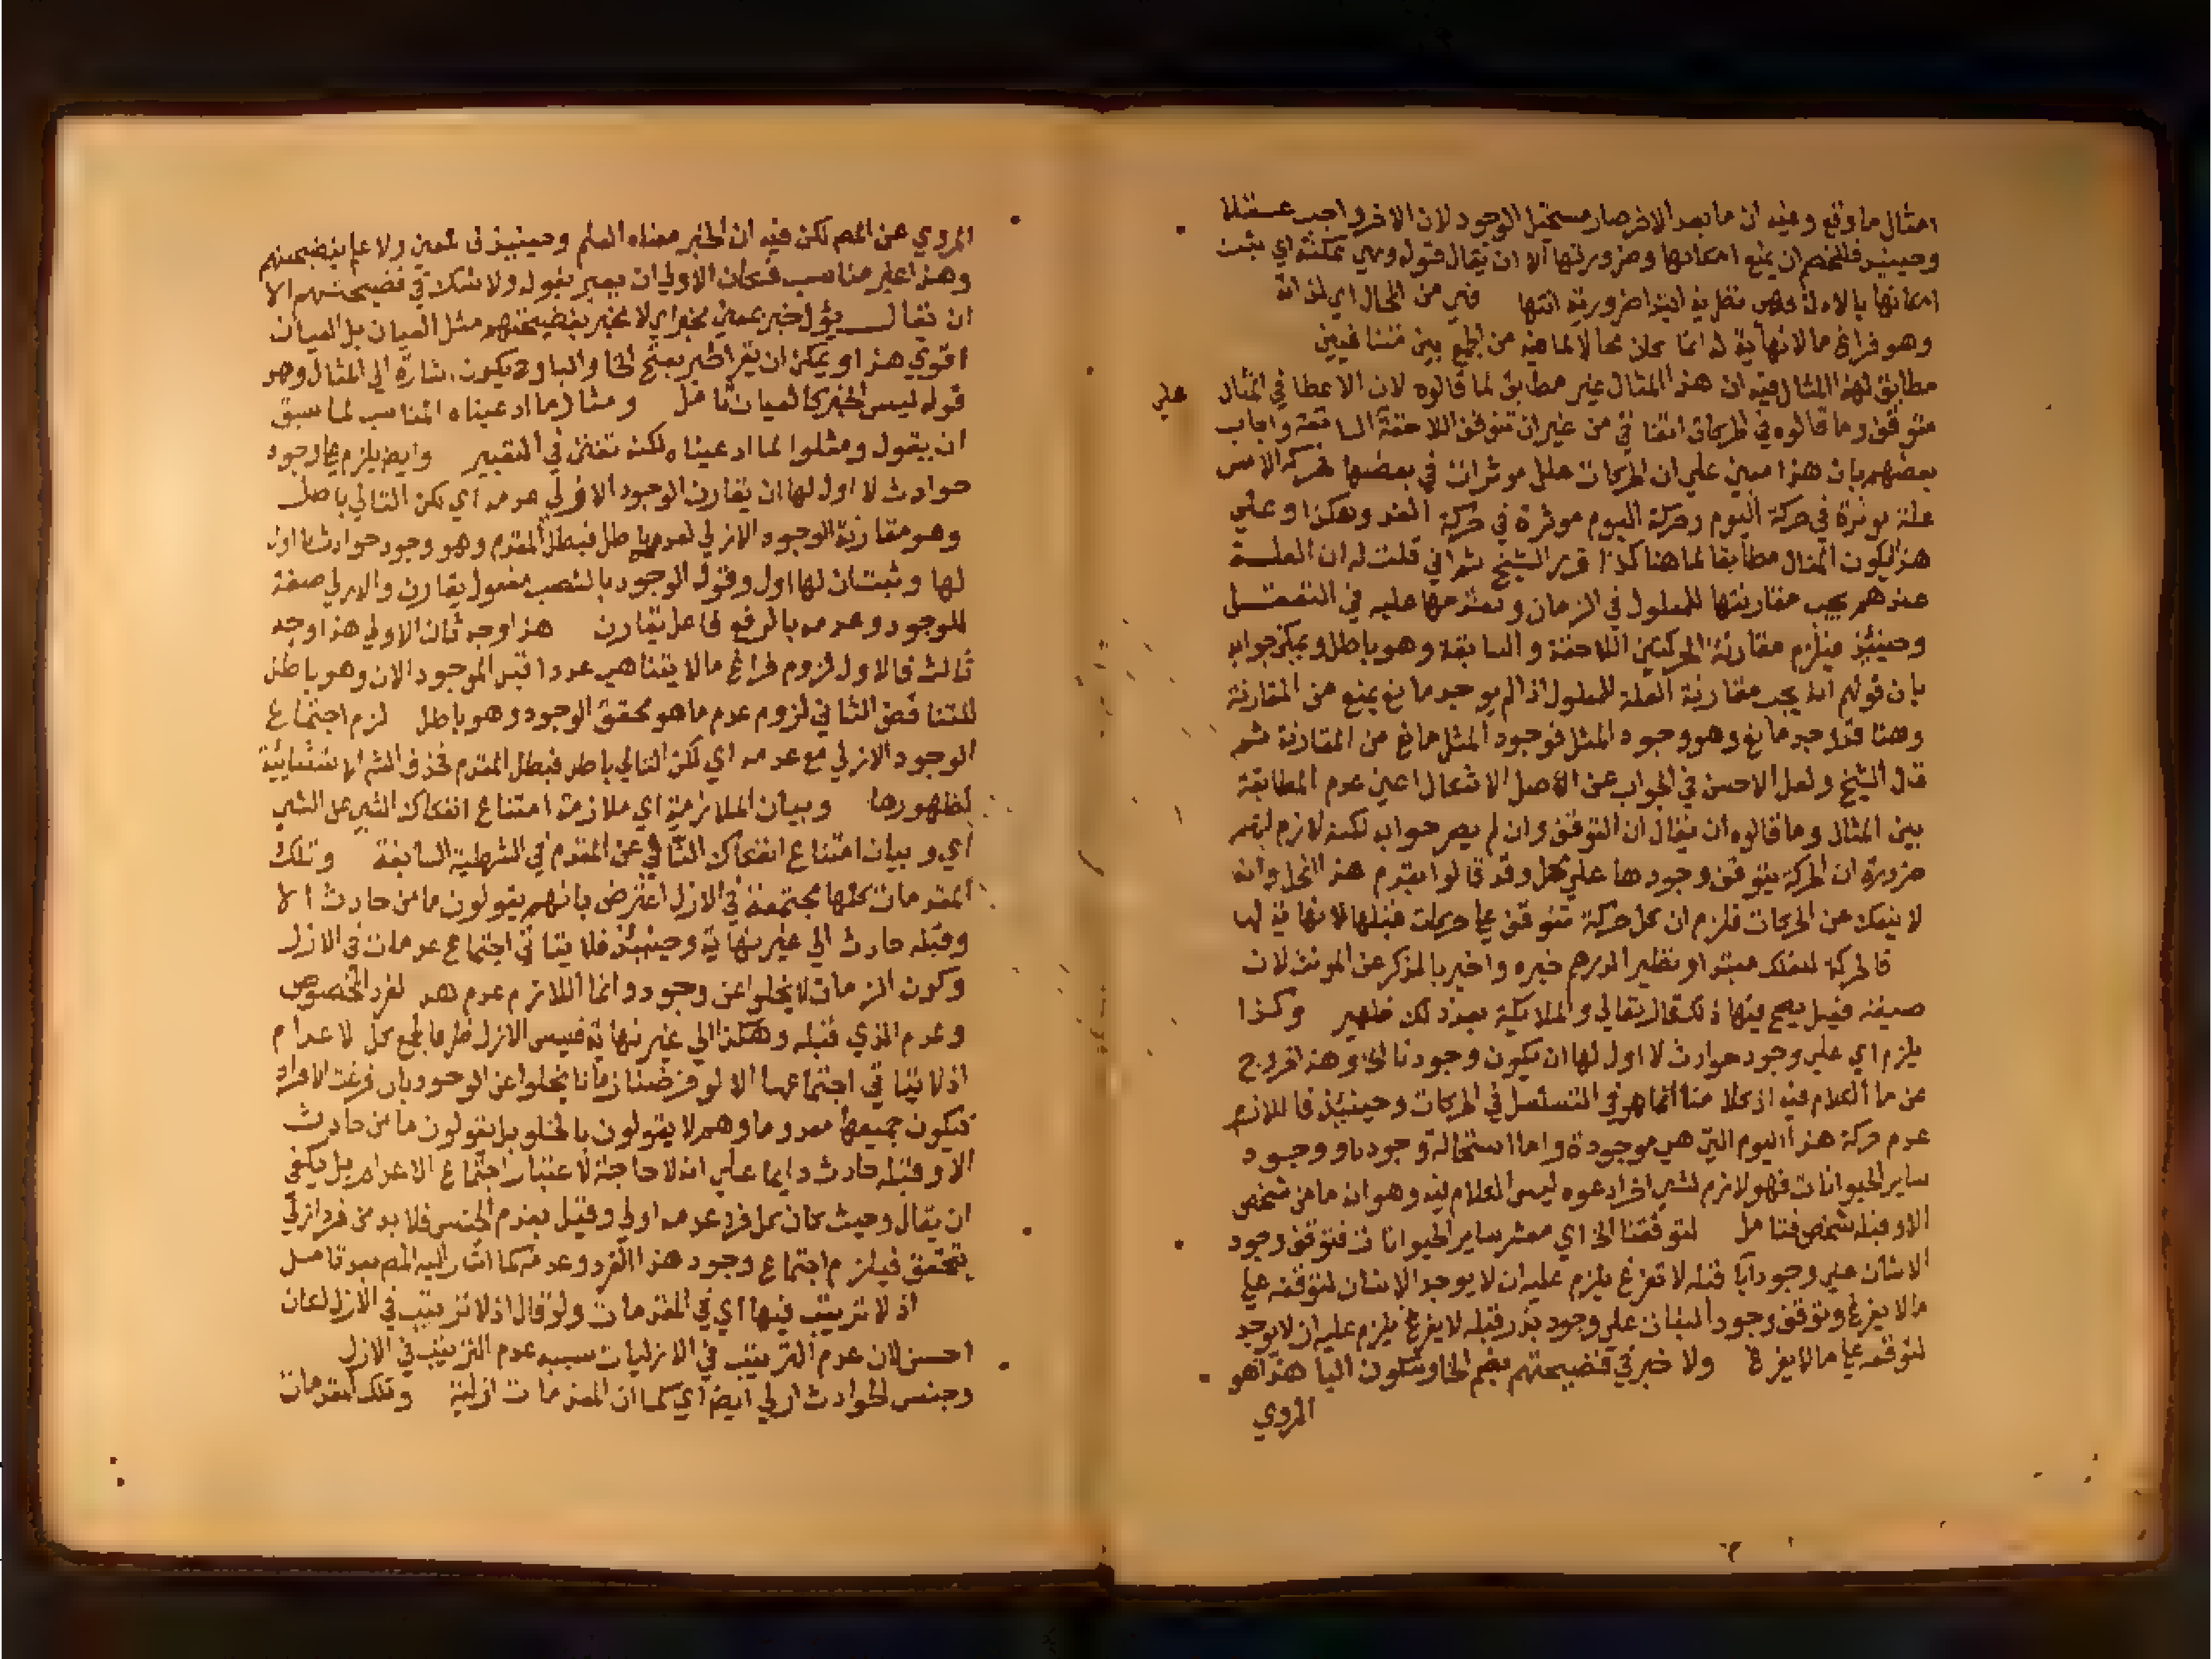 امثال ما وقع وفيه ان ما بعد الاخر صار مستحيل الوجود لان الاخر واجب عقلا
وحينيذ فللخصم ان يمنع امكانها وضرورتها الا ان يقال قوله وهي ممكنة اي ثبت
امكانها بالادلة وهي نظرية ابتدا ضرورية انتها فهي من المحال اي لذاته
وهو فراغ ما لا نهاية له انما كان محالا لما فيه من الجمع بين متنافيين
مطابق لهذا المثال فيه ان هذا المثال غير مطابق لما قالوه لان الاعطا في المثال
علي
متوقف وما قالوه في الحركات اتفاقي من غير ان تتوقف اللاحقة السابقة واجاب
بعضهم بان هذا مبني علي ان الحركات علل موثرات في بعضها فحركة الامس
علة موثرة في حركة اليوم وحركة اليوم موثرة في حركة الغد وهكذا وعلي
هذا يكون المثال مطابقا لما هنا كذا قرر الشيخ ثم اني قلت له ان العلة
عندهم يجب مقارنتها للمعلول في الزمان وتقدمها عليه في التعقل
وحينئذ فيلزم مقارنة الحركتين اللاحقة والسابقة وهو باطل ويمكن جوابه
بان قولهم انه يجب مقارنة العلة للمعلول اذا لم يوجد مانع يمنع من المقارنة
وهنا قد وجد مانع وهو وجود المثل فوجود المثل مانع من المقارنة ثم
قال الشيخ ولعل الاحسن في الجواب عن الاصل الاشكال اعني عدم المطابقة
بين المثال وما قالوه ان يقال ان التوقف وان لم يصرحوا به لكنه لازم لهم
ضرورة ان الحركة يتوقف وجودها علي محل وقد قالوا بقدم هذا المحل وانه
لا ينفك عن الحركات فلزم ان كل حركة متوقف علي حركات قبلها لا نهاية لها
فالحركة للفلك مبتدا ونظير الدرهم خبره واخبر بالمذكر عن المونث لان
صيغة فعيل يصح فيها ذلك قال تعالي والملايكة بعد ذلك ظهير وكذا
يلزم اي علي وجود حوادث لا اول لها ان يكون وجودنا الخ وهذا خروج
عن ما الكلام فيه اذ كلامنا انما هو في التسلسل في الحركات وحينئذ فاللازم
عدم حركة هذا اليوم التي هي موجودة واما استحالة وجودنا ووجود
ساير الحيوانات فهو لازم لشي اخر ادعوه ليس الكلام فيه وهو انه ما من شخص
الا وقبله شخص فتامل لتوقفنا الخ اي معشر ساير الحيوانات فتوقف وجود
الانسان علي وجود ابا قبله لا تفرغ يلزم عليه ان لا يوجد الانسان لتوقفه علي
ما لا يفرغ وتوقف وجود النبات علي وجود بذر قبله لا يفرغ يلزم عليه ان لا يوجد
لتوقفه علي ما لا يفرغ ولا خبر في فضيحتهم بضم الخا وسكون البا هذا هو
المروي
المروي عن المص لكن فيه ان الخبر معناه العلم وحينيذ فالمعني ولا علم بفضيحتهم
وهذا غير مناسب فكان الاولي ان يعبر بقوله ولا شك في فضيحتهم الا
ان يقال يؤل خبر بمعني مخبر اي لا مخبر بفضيحتهم مثل العيان بل العيان
اقوي هذا ويمكن ان يقرا خبر بفتح الخا والبا ويكون اشارة الي المثال وهو
قوله ليس الخبر كالعيان تامل ومثال ما ادعيناه المناسب لما سبق
ان يقول ومثلوا لما ادعيناه لكنه تفنن في التعبير وايض يلزم علي وجود
حوادث لا اول لها ان يقارن الوجود الازلي عدمه اي لكن التالي باطل
وهو مقارنة الوجود الازلي لعدمه باطل فبطل المقدم وهو وجود حوادث لا اول
لها وثبت ان لها اول وقوله الوجود بالنصب مفعول يقارن والازلي صفة
للموجود وعدمه بالرفع فاعل يقارن هذا وجه ثان الاولي هذا وجه
ثالث فالاول لزوم فراغ ما لا يتناهي عددا قبل الموجود الان وهو باطل
للتناقض الثاني لزوم عدم ما هو محقق الوجود وهو باطل لزم اجتماع
الوجود الازلي مع عدمه اي لكن التالي باطل فبطل المقدم فحذف الشم الاستثنائية
لظهورها وبيان الملازمة اي ملازمة امتناع انفكاك الشي عن الشي
اي وبيان امتناع انفكاك التالي عن المقدم في الشرطية السابقة وتلك
المقدمات كلها مجتمعة في الازل اعترض بانهم يقولون ما من حادث الا
وقبله حادث الي غير نهاية وحينئذ فلا يتاتي اجتماع عدمات في الازل
وكون الزمان لا يخلوا عن وجود وانما اللازم عدم هذ الفرد المخصوص
وعدم الذي قبله وهكذا الي غير نهاية فليس الازل ظرفا لجمع كل الاعدام
اذ لا يتاتي اجتماعها الا لو فرضنا زمانا يخلوا عن الوجود بان فرغت الافراد
فيكون جميعها معدوما وهم لا يقولون بالخلو بل يقولون ما من حادث
الا وقبله حادث دايما علي انه لا حاجة لاعتبار اجتماع الاعدام بل يكفي
ان يقال وحيث كان كل فرد عدمه اولي وقيل بقدم الجنس فلا بد من فرد ازلي
يتحقق فيلزم اجتماع وجود هذا الفرد وعدمه كما اشار اليه المص بعد تامل
اذ لا ترتيب فيها اي في المقدمات ولو قال اذ لا ترتيب في الازل لكان
احسن لان عدم الترتيب في الازليات سببه عدم الترتيب في الازل
وجنس الحوادث ازلي ايض اي كما ان المقدمات ازلية وتلك المقدمات